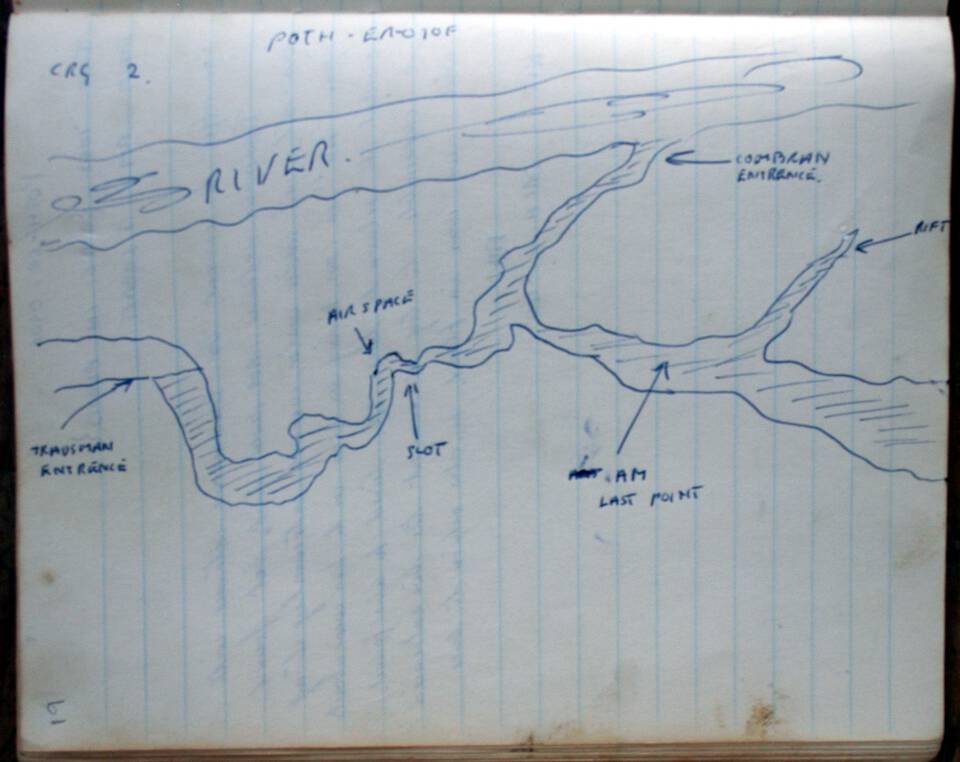 POTH-EROIOF
CRG 2.
RIVER.
COMBRAN
ENTRENCE.
RIFT
AIRSPACE
TRADSMAN
ENTRENCE
SLOT
AM
LAST POINT
15